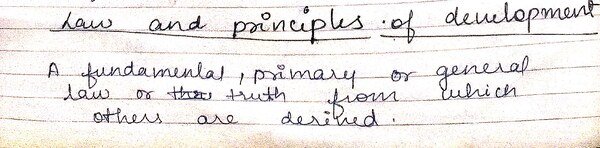 Law and principles of development
A fundamental, primary or general
law or truth from which
others are derived.